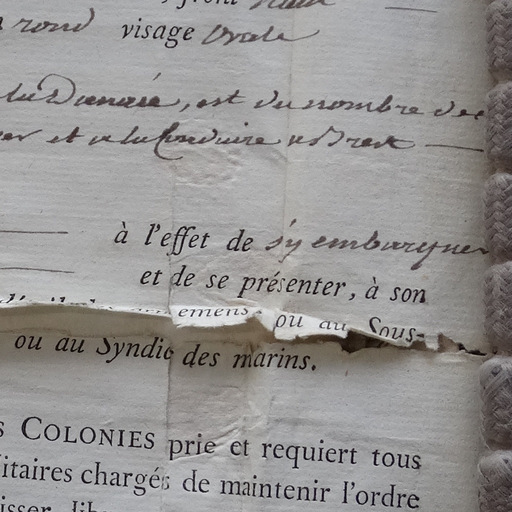 front haut
rond visage ovale
la Danaé, est du nombre des
et a la Conduire a Brest
à l'effet de s'y embarquer
et de se présenter, à son
emens, ou au Sous-
ou au Syndic des marins.
s COLONIES prie et requiert tous
litaires chargés de maintenir l'ordre